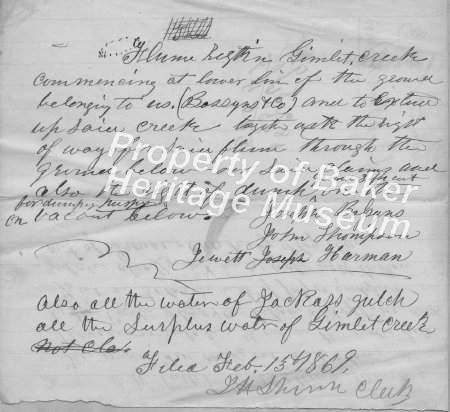 Flume Right in Gimlet Creek
commencing at lower line of the ground
belonging to us, (Bossyns & Co) and to Extend
up Said creek together with the right
of way for Said flume through the
ground below Said claim and
also right of dump on the
for dumping purposes
on vacant below
John Thompson
Jewett Joseph Harman
Also all the water of Jackass gulch
all the Surplus water of Gimlet Creek
Not Cla
Filed Feb. 15th 1869,
Clerk
Property of Baker
Heritage Museum